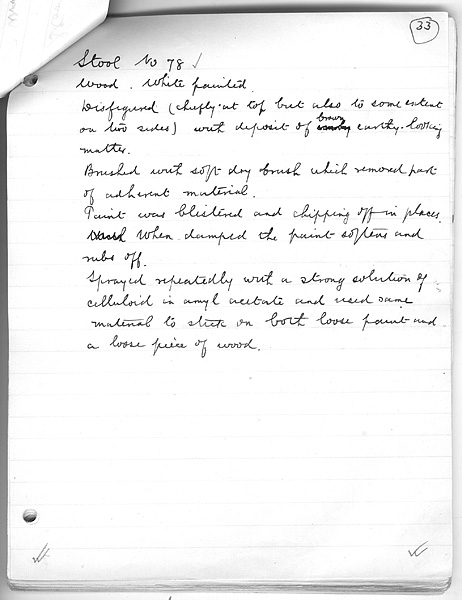 33
Stool No 78 ✓
Wood. White painted.
Disfigured (chiefly at top but also to some extent
on two sides) with deposit of brown earthy-looking
matter.
Brushed with soft dry brush which removed part
of adherent material.
Paint was blistered and chipping off in places.
When damped the paint softens and
rubs off.
Sprayed repeatedly with a strong solution of
celluloid in amyl acetate and used same
material to stick on both loose paint and
a loose piece of wood.